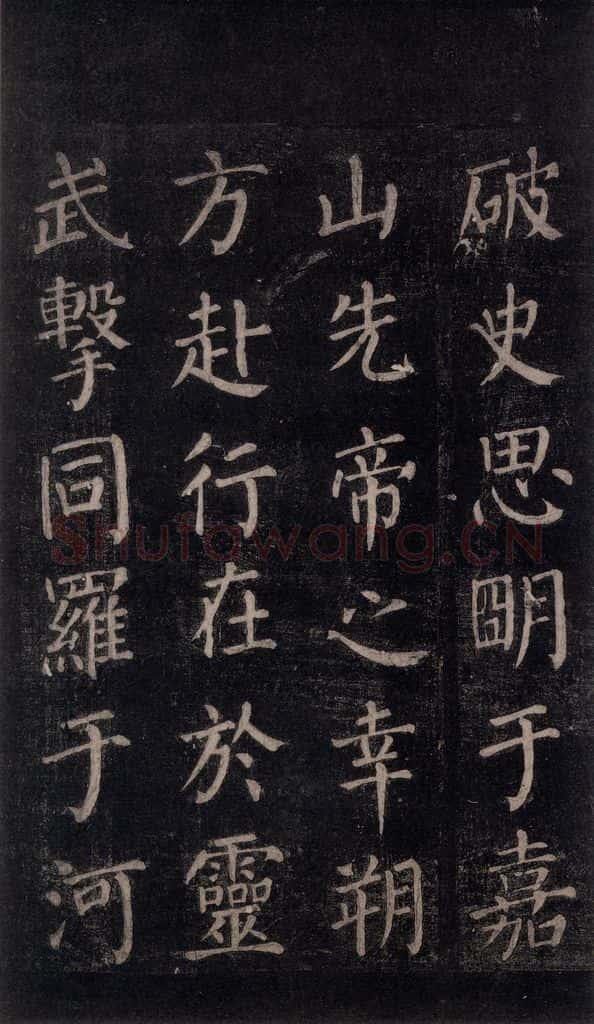 破史思明于嘉
山先帝之幸朔
方赴行在於靈
武擊同羅于河
Shufawang.CN